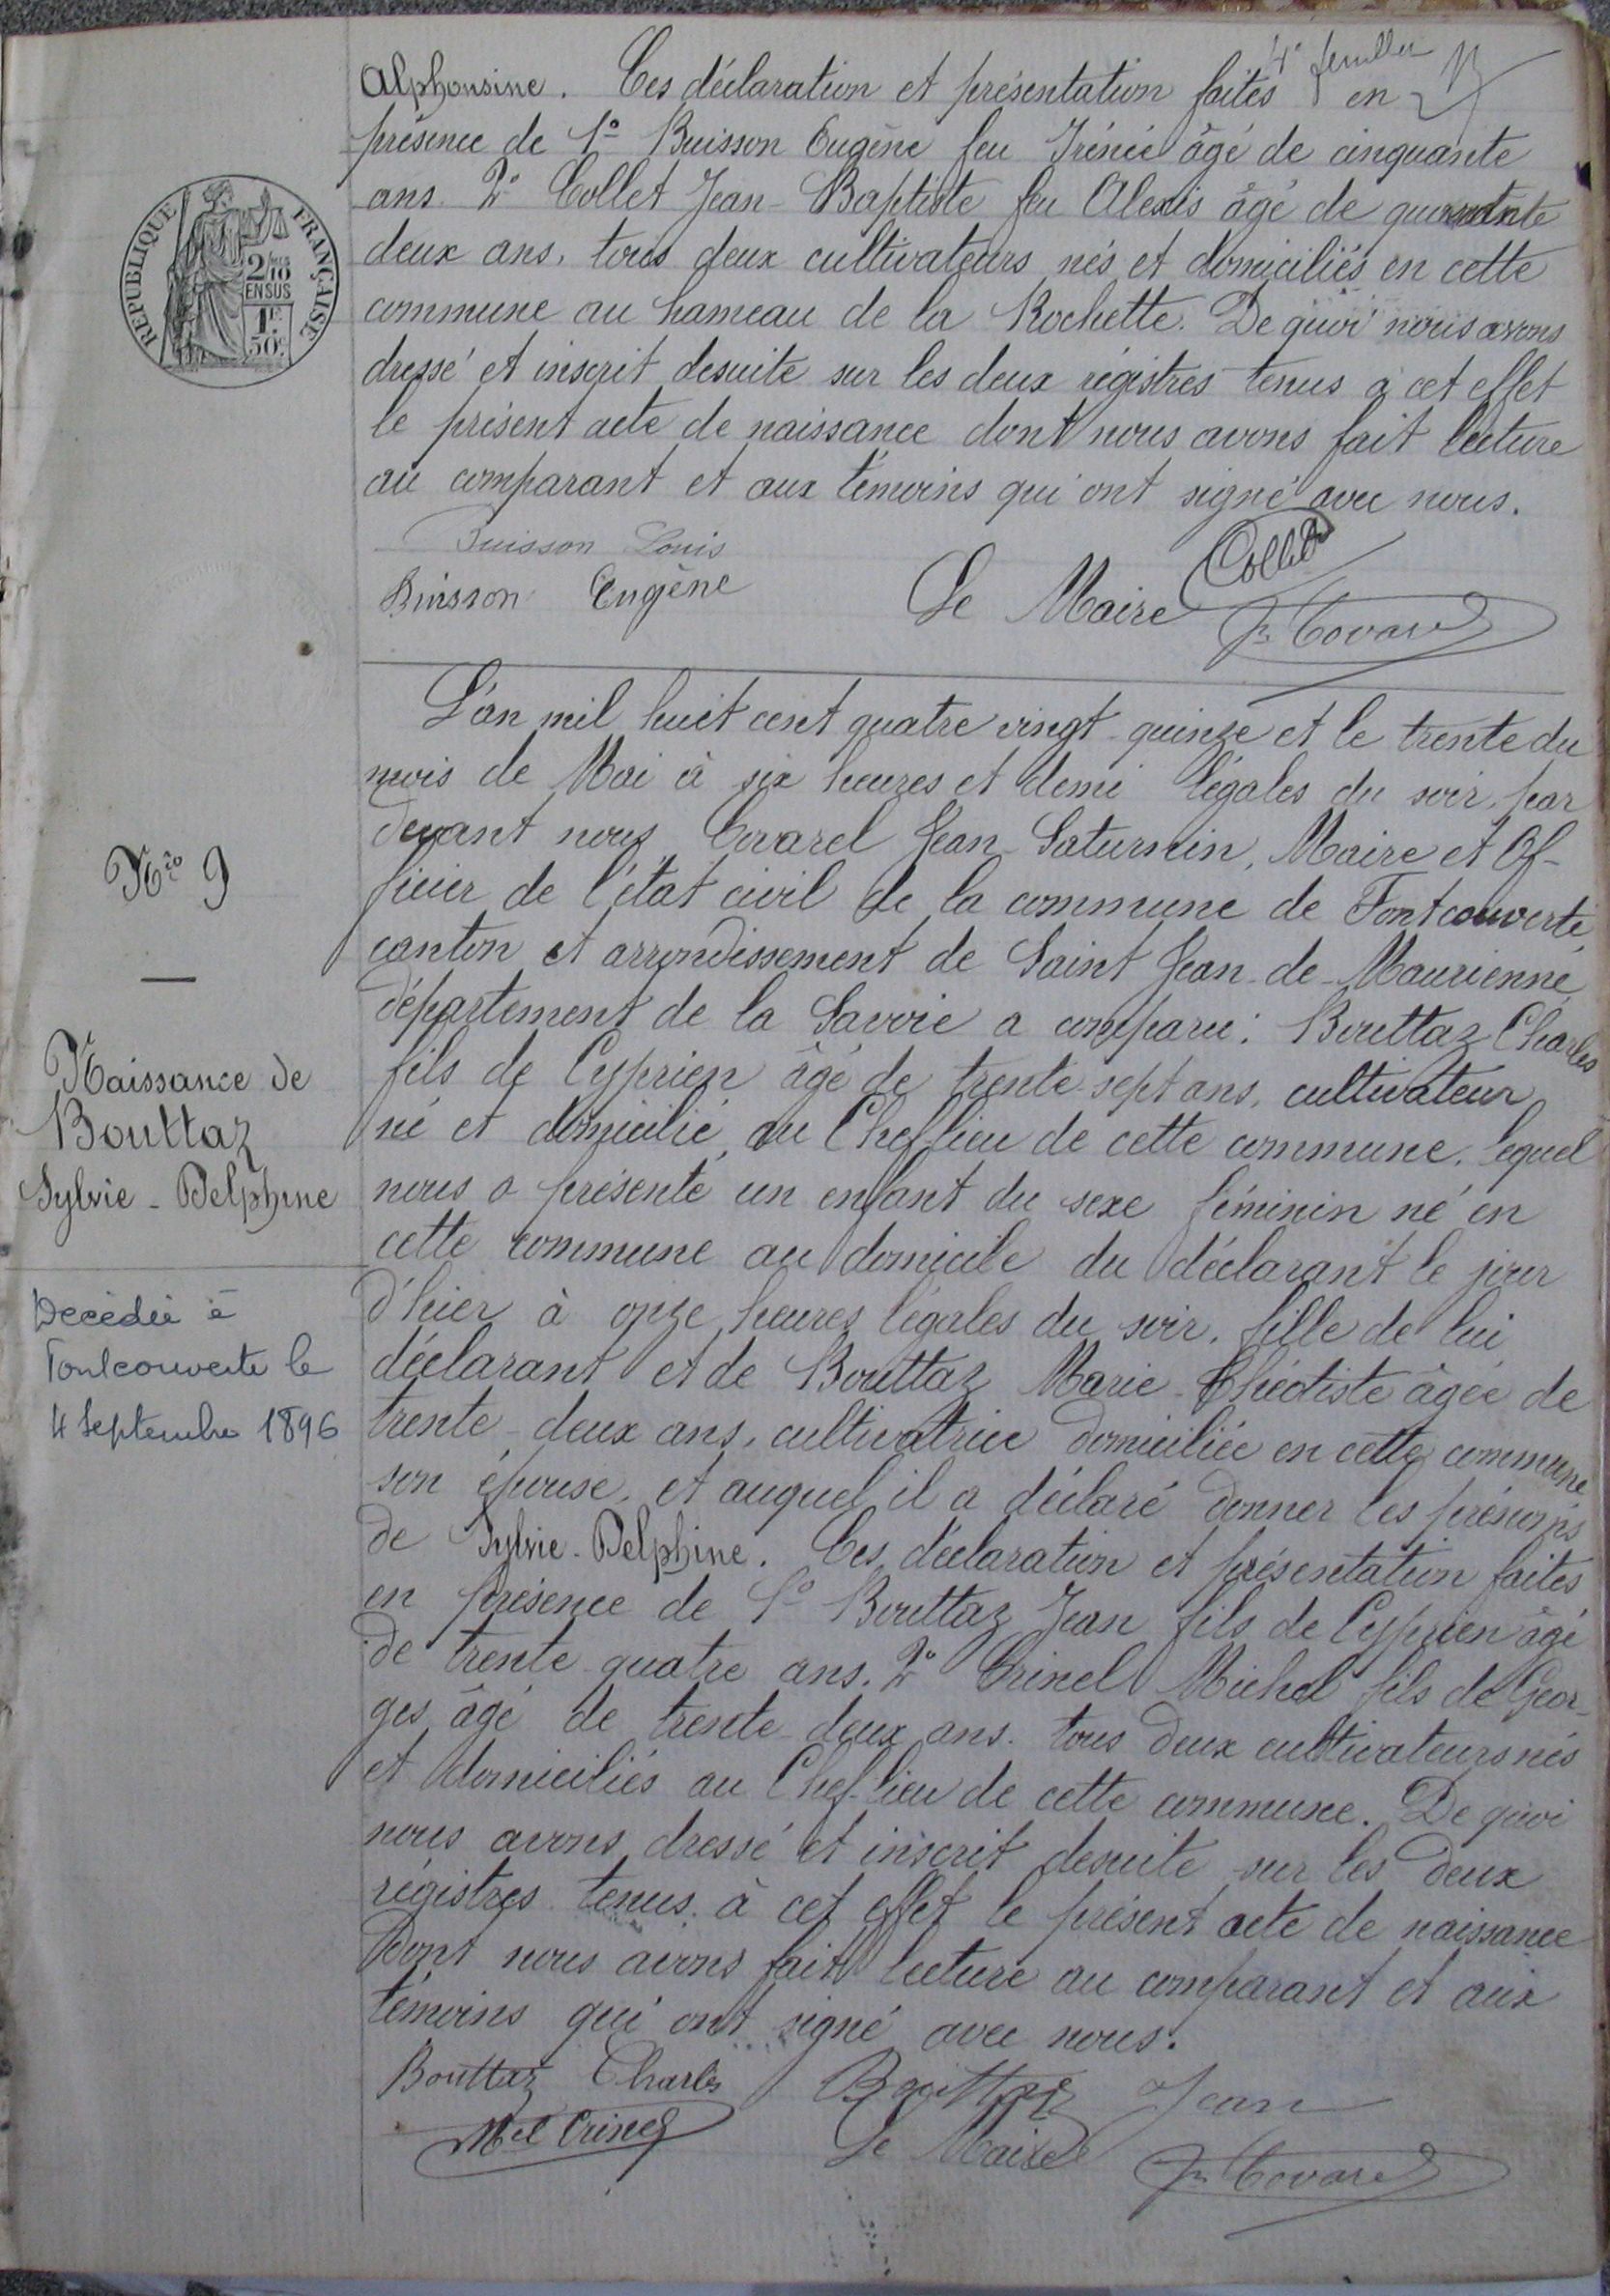 4e feuillet
Alphonsine. Ces déclaration et présentation faites en
présence de 1o Buisson Eugène feu Irénée âgé de cinquante
ans. 2o Collet Jean-Baptiste feu Alexis âgé de quarante
deux ans, tous deux cultivateurs nés et domiciliés en cette
commune au hameau de la Rochette. De quoi nous avons
dressé et inscrit desuite sur les deux régistres tenus à cet effet
le présent acte de naissance dont nous avons fait lecture
au comparant et aux témoins qui ont signé avec nous.
REPUBLIQUE FRANÇAISE
2/10
EN SUS
1F
50c
Buisson Louis
Collet
Buisson Eugène
Le Maire
Jn Covarel
No 9
Naissance de
Bouttaz
Sylvie-Delphine
Décédée à
Fontcouverte le
4 Septembre 1896
L'an mil huit cent quatre vingt-quinze et le trente du
mois de Mai à six heures et demi légales du soir, par
devant nous Covarel Jean-Saturnin, Maire et Of-
ficier de l'état civil de la commune de Fontcouverte,
canton et arrondissement de Saint Jean-de-Maurienne,
département de la Savoie a comparu: Bouttaz Charles
fils de Cyprien âgé de trente-sept ans, cultivateur
né et domicilié au Chef-lieu de cette commune, lequel
nous a présenté un enfant du sexe féminin né en
cette commune au domicile du déclarant le jour
d'hier à onze heures légales du soir, fille de lui
déclarant et de Bouttaz Marie-Théotiste âgée de
trente-deux ans, cultivatrice domiciliée en cette commune
son épouse, et auquel il a déclaré donner les prénoms
de Sylvie-Delphine. Ces déclaration et présentation faites
en présence de 1o Bouttaz Jean fils de Cyprien âgé
de trente-quatre ans. 2o Crinel Michel fils de Geor-
ges âgé de trente-deux ans. tous deux cultivateurs nés
et domiciliés au Chef-lieu de cette commune. De quoi
nous avons dressé et inscrit desuite sur les deux
régistres tenus à cet effet le présent acte de naissance
dont nous avons fait lecture au comparant et aux
témoins qui ont signé avec nous.
Bouttaz Charles
Bouttaz Jean
Mel Crinel
Le Maire
Jn Covarel